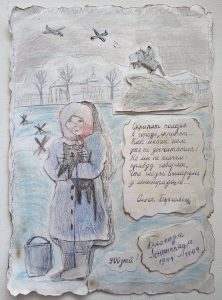 Скрипят полозья
в городе, скрипят...
Как многих нам
уже не досчитаться!
Но мы не плачем:
правду говорят,
что слезы вымерзли
у ленинградцев...
Ольга Берггольц
900 дней
Блокада
Ленинграда
1941-1944